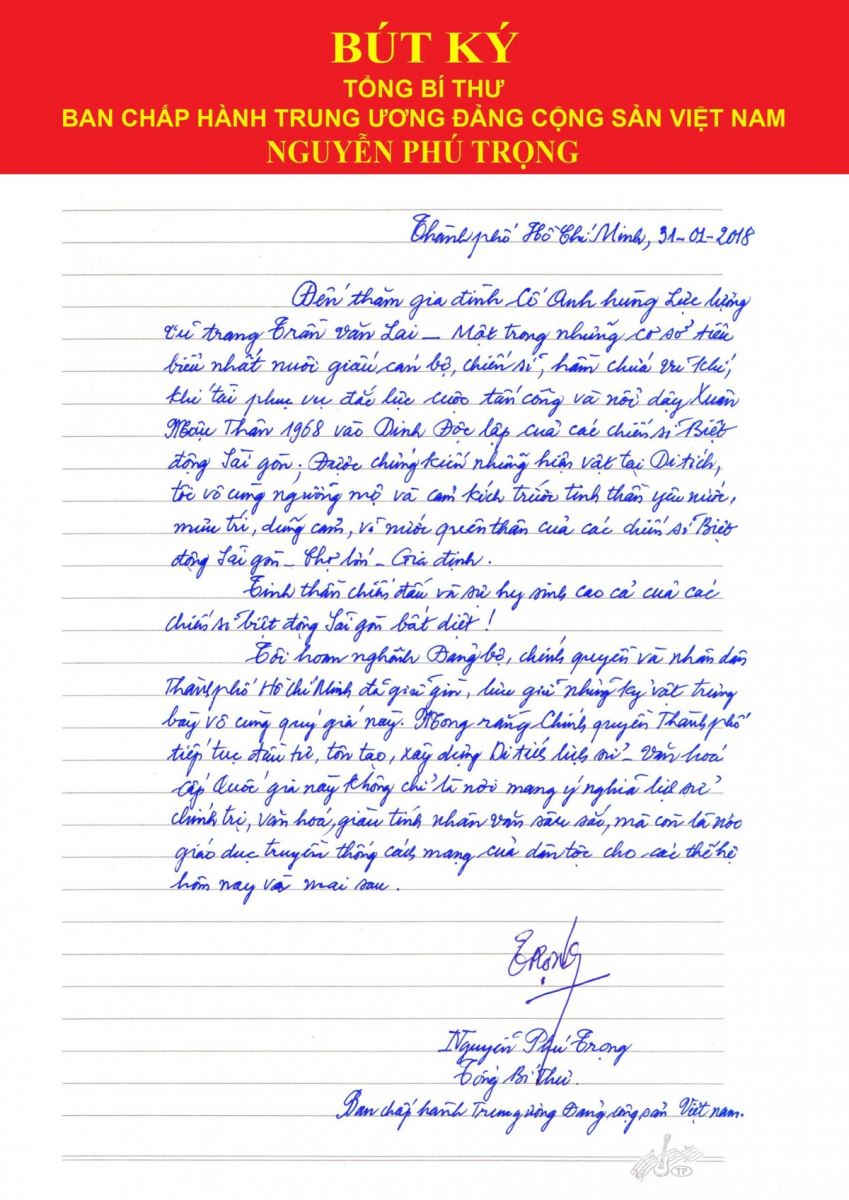 BÚT KÝ
TỔNG BÍ THƯ
BAN CHẤP HÀNH TRUNG ƯƠNG ĐẢNG CỘNG SẢN VIỆT NAM
NGUYỄN PHÚ TRỌNG
Thành phố Hồ Chí Minh, 31-01-2018
Đến thăm gia đình Cố Anh hùng Lực lượng
vũ trang Trần Văn Lai – Một trong những cơ sở tiêu
biểu nhất nuôi giấu cán bộ, chiến sĩ, hầm chứa vũ khí,
khí tài phục vụ đắc lực cuộc tấn công và nổi dậy Xuân
Mậu Thân 1968 vào Dinh Độc lập của các chiến sĩ Biệt
động Sài gòn; Được chứng kiến những hiện vật tại Di tích,
tôi vô cùng ngưỡng mộ và cảm kích trước tinh thần yêu nước,
mưu trí, dũng cảm, vì nước quên thân của các chiến sĩ Biệt
động Sài gòn – Chợ lớn – Gia định.
Tinh thần chiến đấu và sự hy sinh cao cả của các
chiến sĩ biệt động Sài gòn bất diệt!
Tôi hoan nghênh Đảng bộ, chính quyền và nhân dân
Thành phố Hồ Chí Minh đã giữ gìn, lưu giữ những kỷ vật trưng
bày vô cùng quý giá này. Mong rằng Chính quyền Thành phố
tiếp tục đầu tư, tôn tạo, xây dựng Di tích lịch sử – Văn hoá
cấp Quốc gia này không chỉ là nơi mang ý nghĩa lịch sử
chính trị, văn hoá, giàu tính nhân văn sâu sắc, mà còn là nơi
giáo dục truyền thống cách mạng của dân tộc cho các thế hệ
hôm nay và mai sau.
Trọng
Nguyễn Phú Trọng
Tổng Bí Thư
Ban chấp hành Trung ương Đảng cộng sản Việt nam.
TP